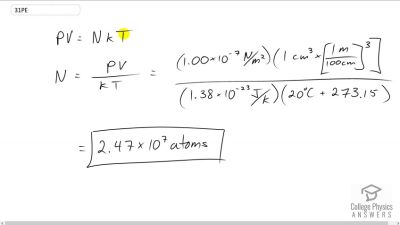 31PE
PV = NkT
N = PV / kT = (1.00 × 10⁻⁷ N/m²)(1 cm³ × [1 m / 100 cm]³) / (1.38 × 10⁻²³ J/K)(20°C + 273.15)
= 2.47 × 10⁷ atoms
College Physics
ANSWERS